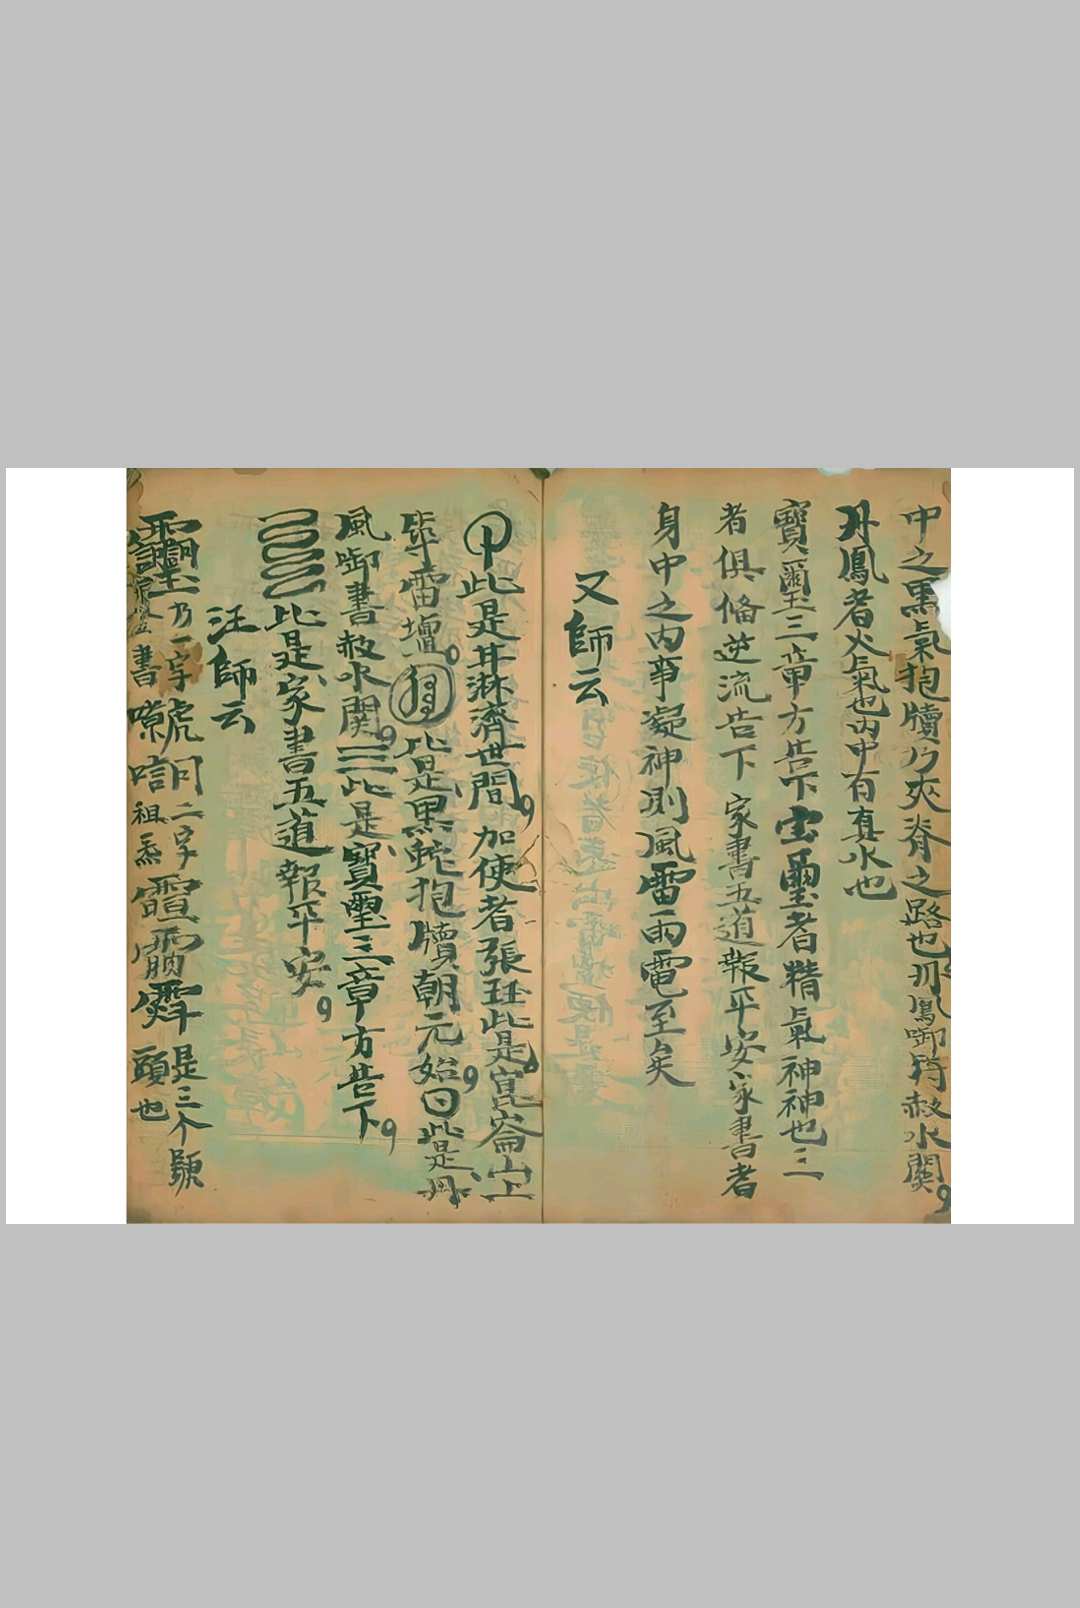 中之黑氣抱牘乃夾脊之路也丹鳳啣符赦水關
丹鳳者火氣也內中有真水也
寶璽三章方告下宝璽者精氣神神也三
者俱俻逆流告下家書五道報平安家書者
身中之內事凝神則風雷雨電至矣
又師云
此是甘淋濟世間加使者張珏此是崑崙山上
雷壇此是黑蛇抱牘朝元始曰此是丹
風啣書赦水関三此是寶璽三章方告下
此是家書五道報平安
汪師云
乃一字號詞二字是三个號
書祖炁頭也